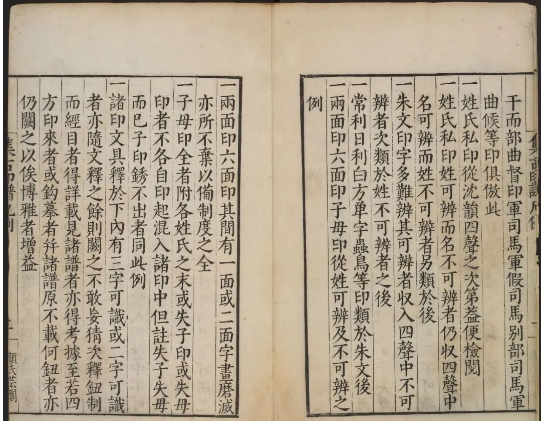 干而部曲督印軍司馬軍假司馬别部司馬軍
曲候等印俱倣此
一姓氏私印從沈韻四聲之次第益便檢閱
一姓氏私印姓可辨而名不可辨者仍収四聲中
名可辨而姓不可辨者另類於後
一朱文印字多難辨其可辨者收入四聲中不可
辨者次類於姓不可辨者之後
一常利日利白方单字蟲鳥等印類於朱文後
一兩面印六面印子母印從姓可辨及不可辨之
例
一兩面印六面印其間有一面或二面字畫磨滅
亦所不棄以備制度之全
一子母印全者附各姓氏之末或失子印或失母
印者不各自印起混入諸印中但註失子失母
而已子印銹不出者同此例
一諸印文具釋於下內有三字可識或二字可識
者亦隨文釋之餘則闕之不敢妄猜次釋鈕制
而經目者得詳載見諸譜者亦得考據至若四
方印來者或鈎摹者并諸譜原不載何鈕者亦
仍闕之以俟博雅者增益